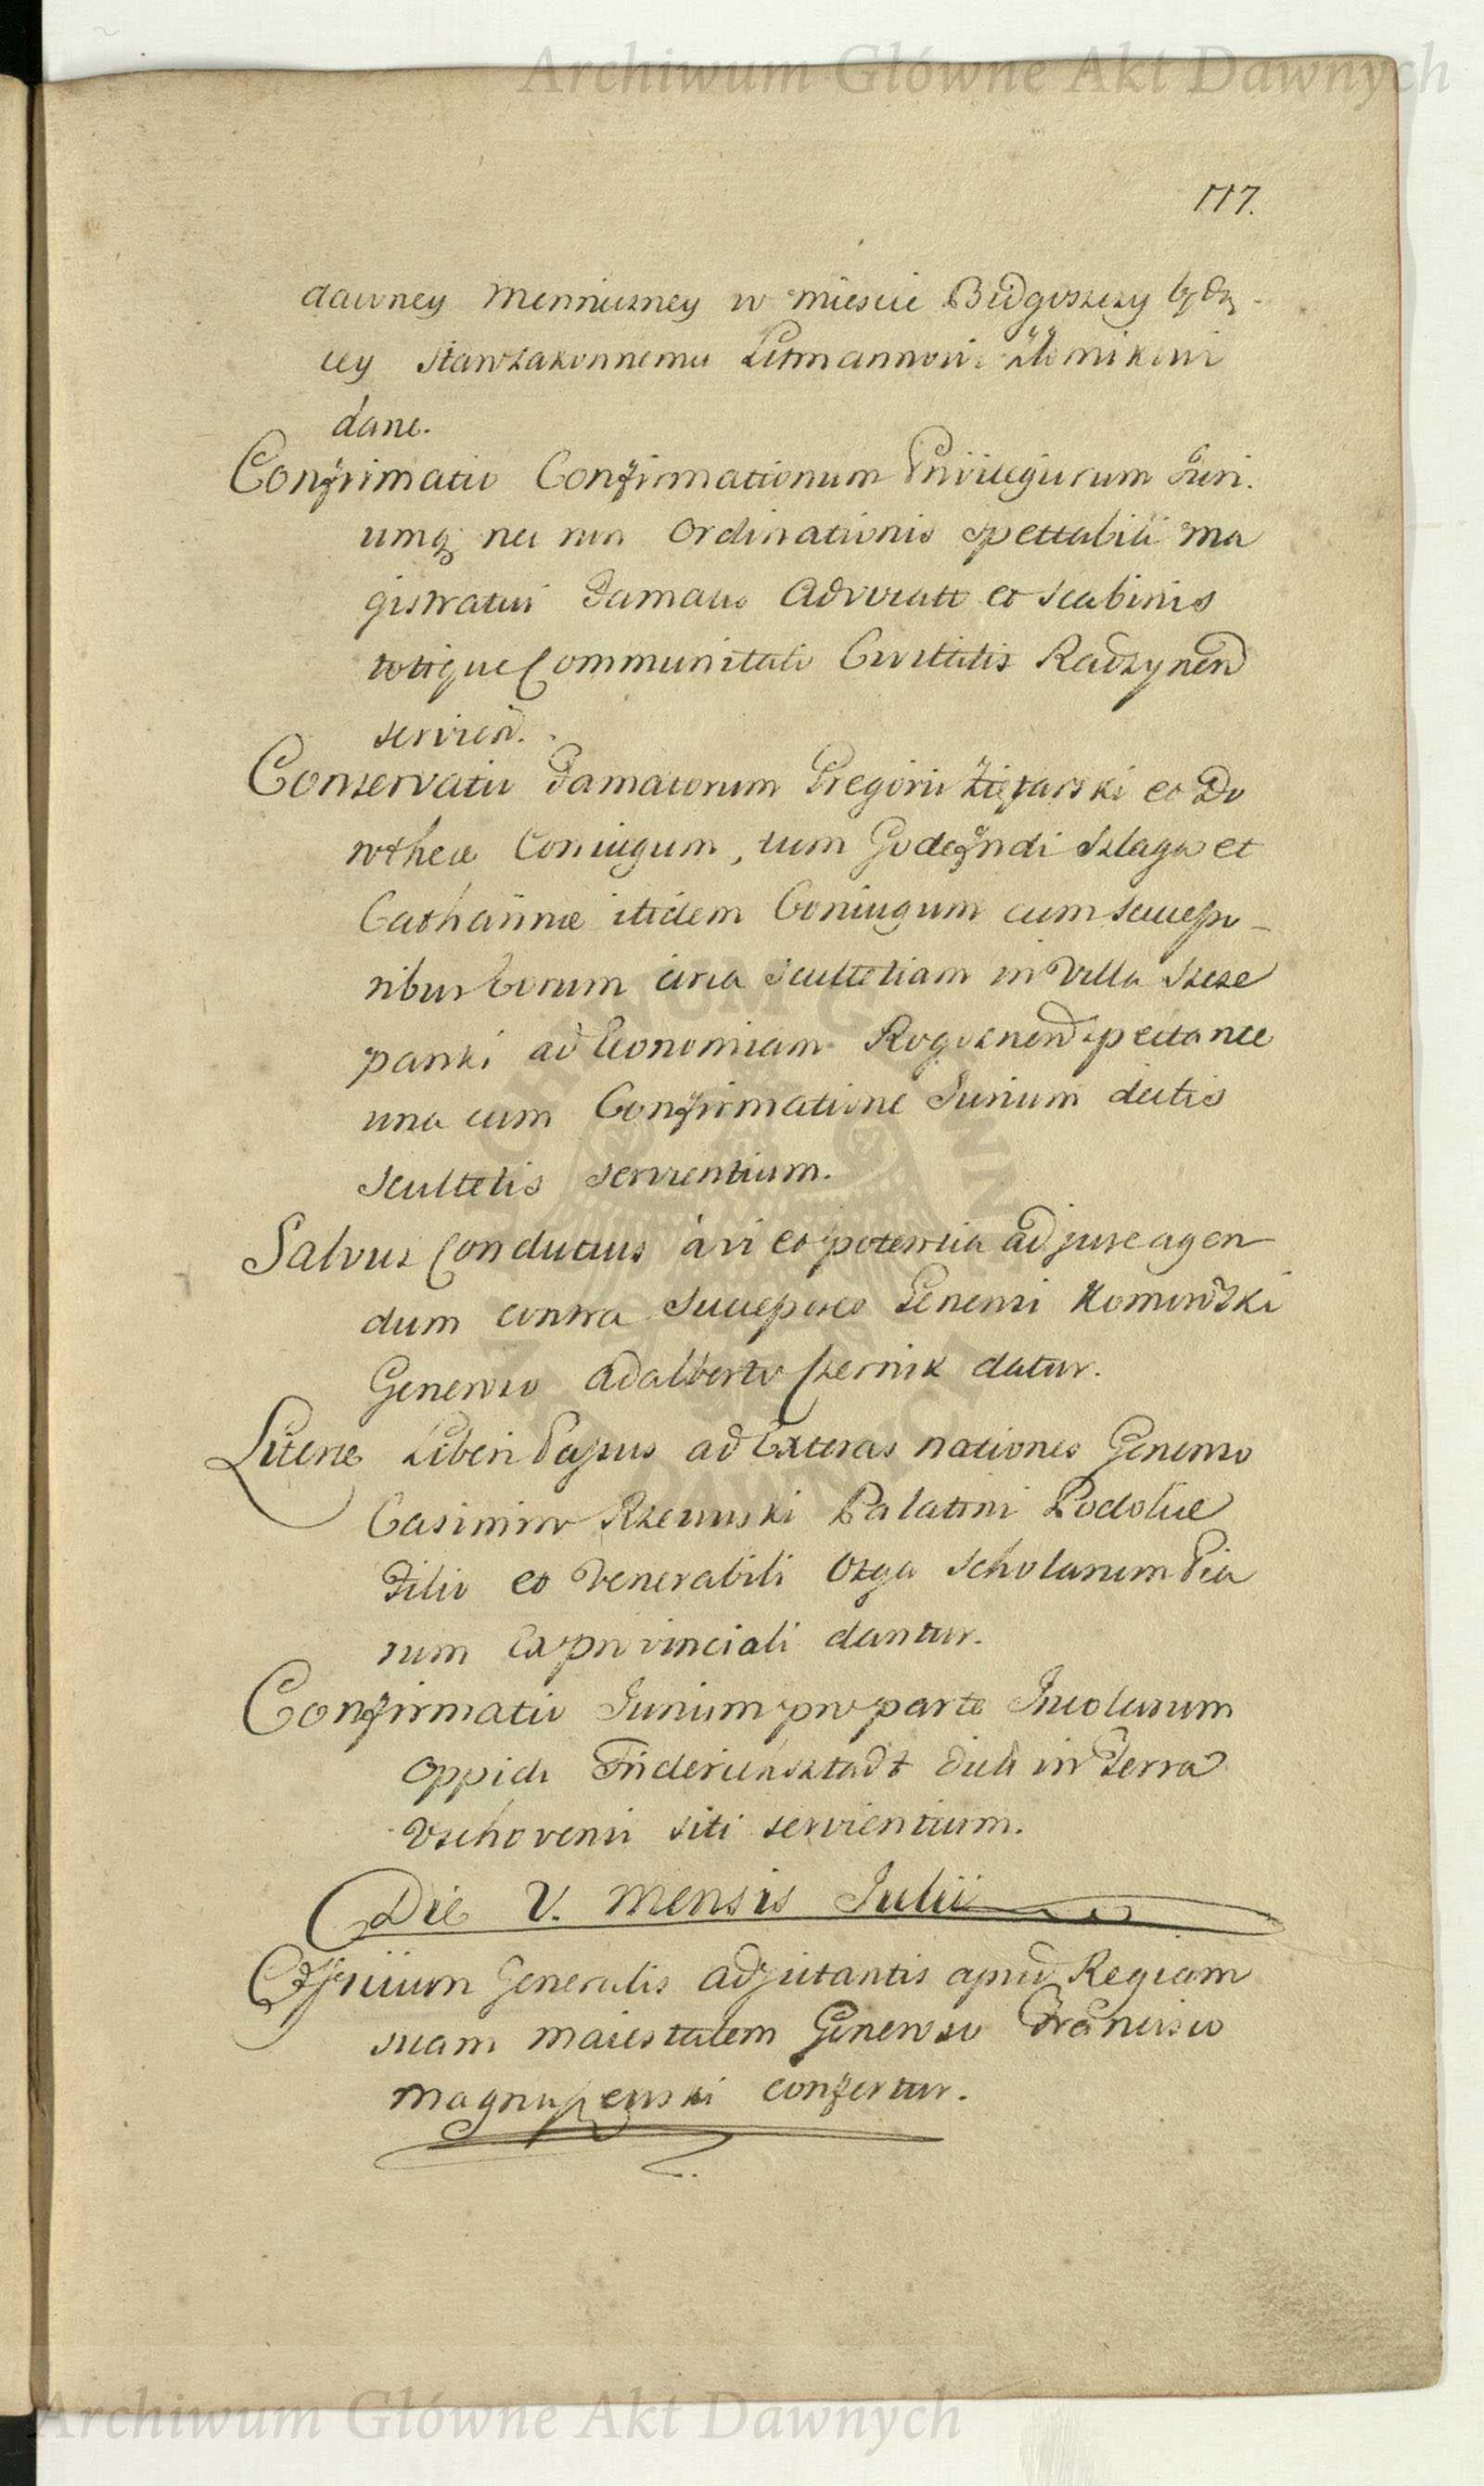 Archiwum Główne Akt Dawnych
117.
dawney Menniczney w miescie Bidgoszczy będą-
cey Starozakonnemu Litmannowi
dane.
Confirmatio Confirmationum Privilegiorum Juri.
umq nec non Ordinationis Spettabili Ma
gistratui Famatis Advocato et Scabinis
totique Communitati Civitatis Radzynen
servien.
Conservatio Famatorum Gregorii Ziętarski et Do
rotheæ Coniugum, tum Godefridi Szlaga et
Catharinæ itidem Coniugum cum Successo-
ribus Eorum circa Scultetiam in Villa Szcze
panki ad Economiam Rogoznen spectante
una cum Confirmatione Jurium dictis
Scultetis servientium.
Salvus Conductus à vi et potentia ad jure agen
dum contra Successores Generosi Komorowski
Generoso Adalberto Czernik datur.
Literæ Liberi Passus ad Exteras nationes Generoso
Casimiro Rzewuski Palatini Podoliæ
Filio et Venerabili Ozga Scholarum Pia
rum Exprovinciali dantur.
Confirmatio Jurium pro parte Incolarum
Oppidi Fridericksztadt dicti in Terra
Vschovensi siti servientium.
Die V. Mensis Julii
Officium Generalis Adjutantis apud Regiam
suam Maiestatem Generoso Francisco
Magnuszewski confertur.
Archiwum Główne Akt Dawnych